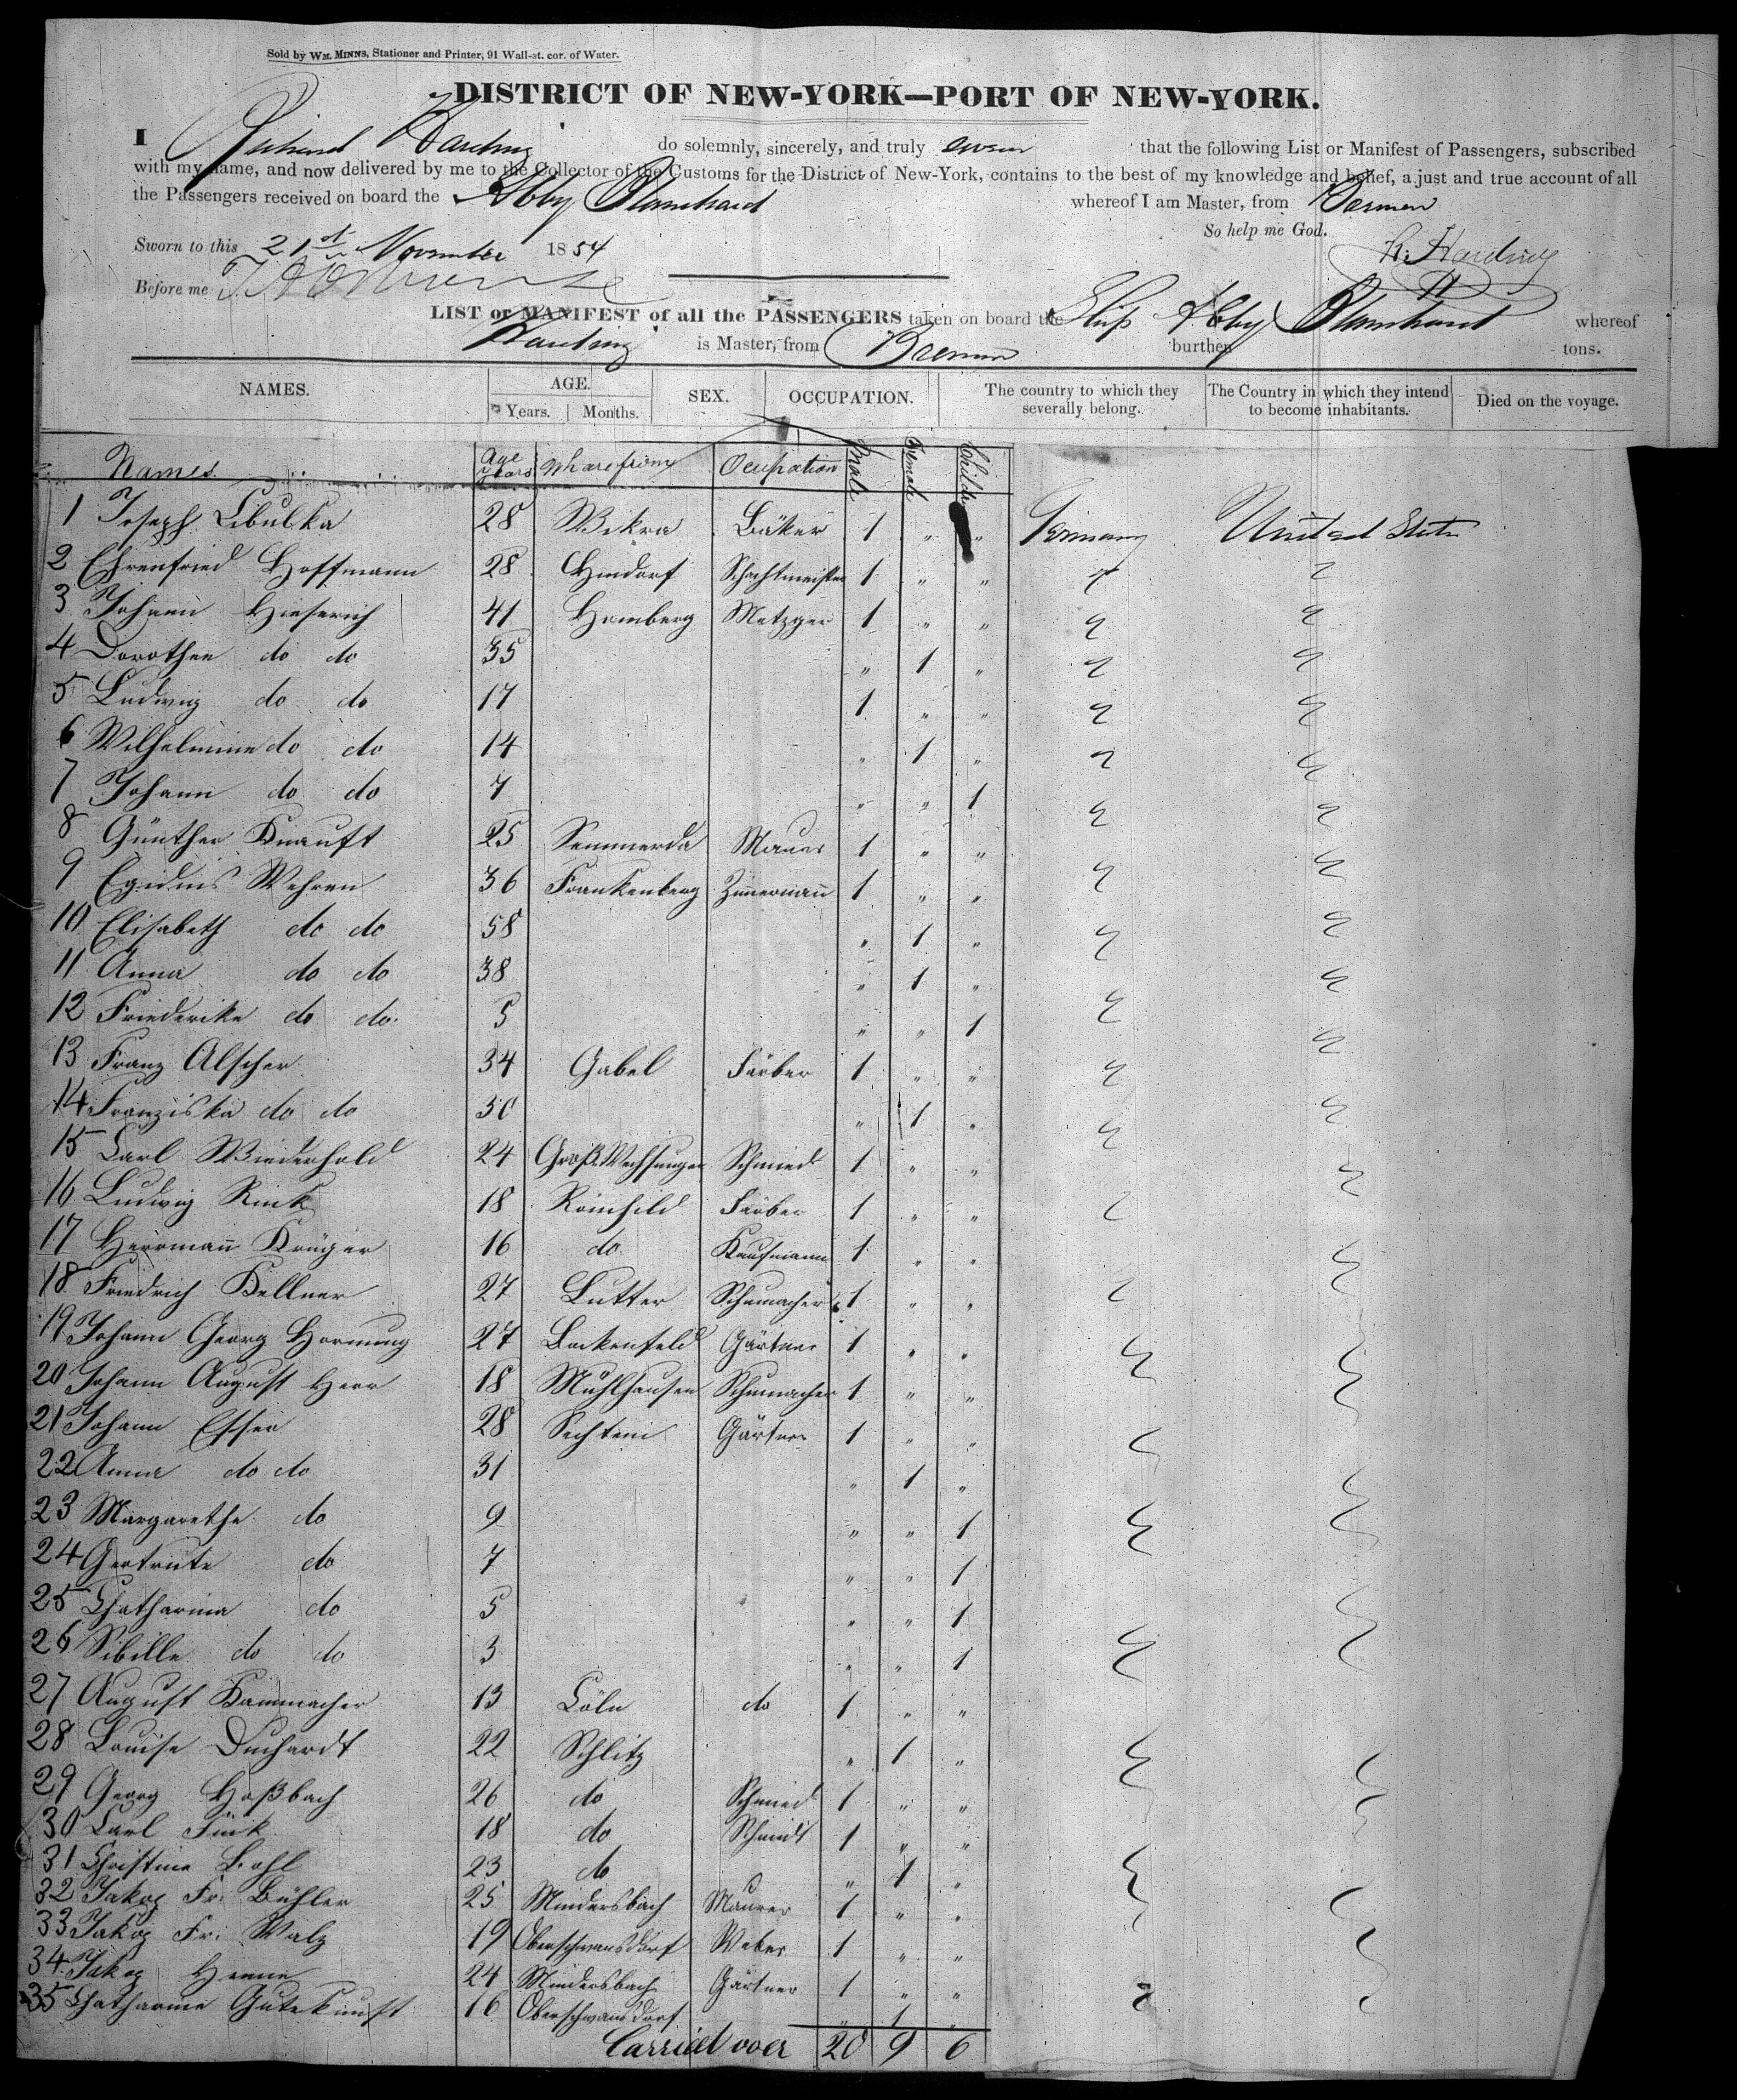 Sold by WM. MINNS, Stationer and Printer, 91 Wall-st. cor. of Water.
DISTRICT OF NEW-YORK—PORT OF NEW-YORK.
I Richard Harding do solemnly, sincerely, and truly swear that the following List or Manifest of Passengers, subscribed
with my name, and now delivered by me to the Collector of the Customs for the District of New-York, contains to the best of my knowledge and belief, a just and true account of all
the Passengers received on board the Abby Blanchard whereof I am Master, from Bremen
So help me God.
Sworn to this 21st November 1854
R. Harding
Before me
LIST or MANIFEST of all the PASSENGERS taken on board the Ship Abby Blanchard whereof
Harding is Master, from Bremen burthen tons.
NAMES. AGE. Years. Months. SEX. OCCUPATION. The country to which they severally belong. The Country in which they intend to become inhabitants. Died on the voyage.
Names Age years Wharefrom Ocupation Male Female Childr
1 Joseph Cibulka 28 Wikra Bäker 1 " " Germany United States
2 Ehrenfried Hoffmann 28 Hindorf Schachtmeister 1 " "
3 Johann Hieserich 41 Homberg Metzger 1 " "
4 Dorothea do do 35 " 1 "
5 Ludwig do do 17 1 " "
6 Wilhelmine do do 14 " 1 "
7 Johann do do 7 " " 1
8 Günther Knauft 25 Semmerda Maurer 1 " "
9 Egidius Wehren 36 Frankenberg Zimmermañ 1 " "
10 Elisabeth do do 58 " 1 "
11 Anna do do 38 " 1 "
12 Friederike do do 5 " " 1
13 Franz Alscher 34 Gabel Färber 1 " "
14 Franziska do do 30 " 1 "
15 Carl Wiederhold 24 Groß Wechsungen Schmied 1 " "
16 Ludwig Rink 18 Römhild Färber 1 " "
17 Herrmañ Krüger 16 do Kaufmann 1 " "
18 Friedrich Kellner 27 Lutter Schumacher 1 " "
19 Johann Georg Hornung 27 Bockenfeld Gärtner 1 " "
20 Johann August Herr 18 Mühlhausen Schumacher 1 " "
21 Johann Esser 28 Sechtem Gärtner 1 " "
22 Anna do do 31 " 1 "
23 Margarethe do 9 " " 1
24 Gertrute do 7 " " 1
25 Chatharina do 5 " " 1
26 Sibille do do 3 " " 1
27 August Kammacher 13 Cöln do 1 " "
28 Louise Duchardt 22 Schlitz " 1 "
29 Georg Hoßbach 26 do Schmied 1 " "
30 Carl Fink 18 do Schmidt 1 " "
31 Christine Bohl 23 do " 1 "
32 Jakog Fr: Bühler 25 Mindersbach Maurer 1 " "
33 Jakog Fr: Walz 19 Oberschwansdorf Weber 1 " "
34 Jakog Henne 24 Mindersbach Gärtner 1 " "
35 Chatharine Gutekunst 16 Oberschwansdorf " 1 "
Carried over 20 9 6